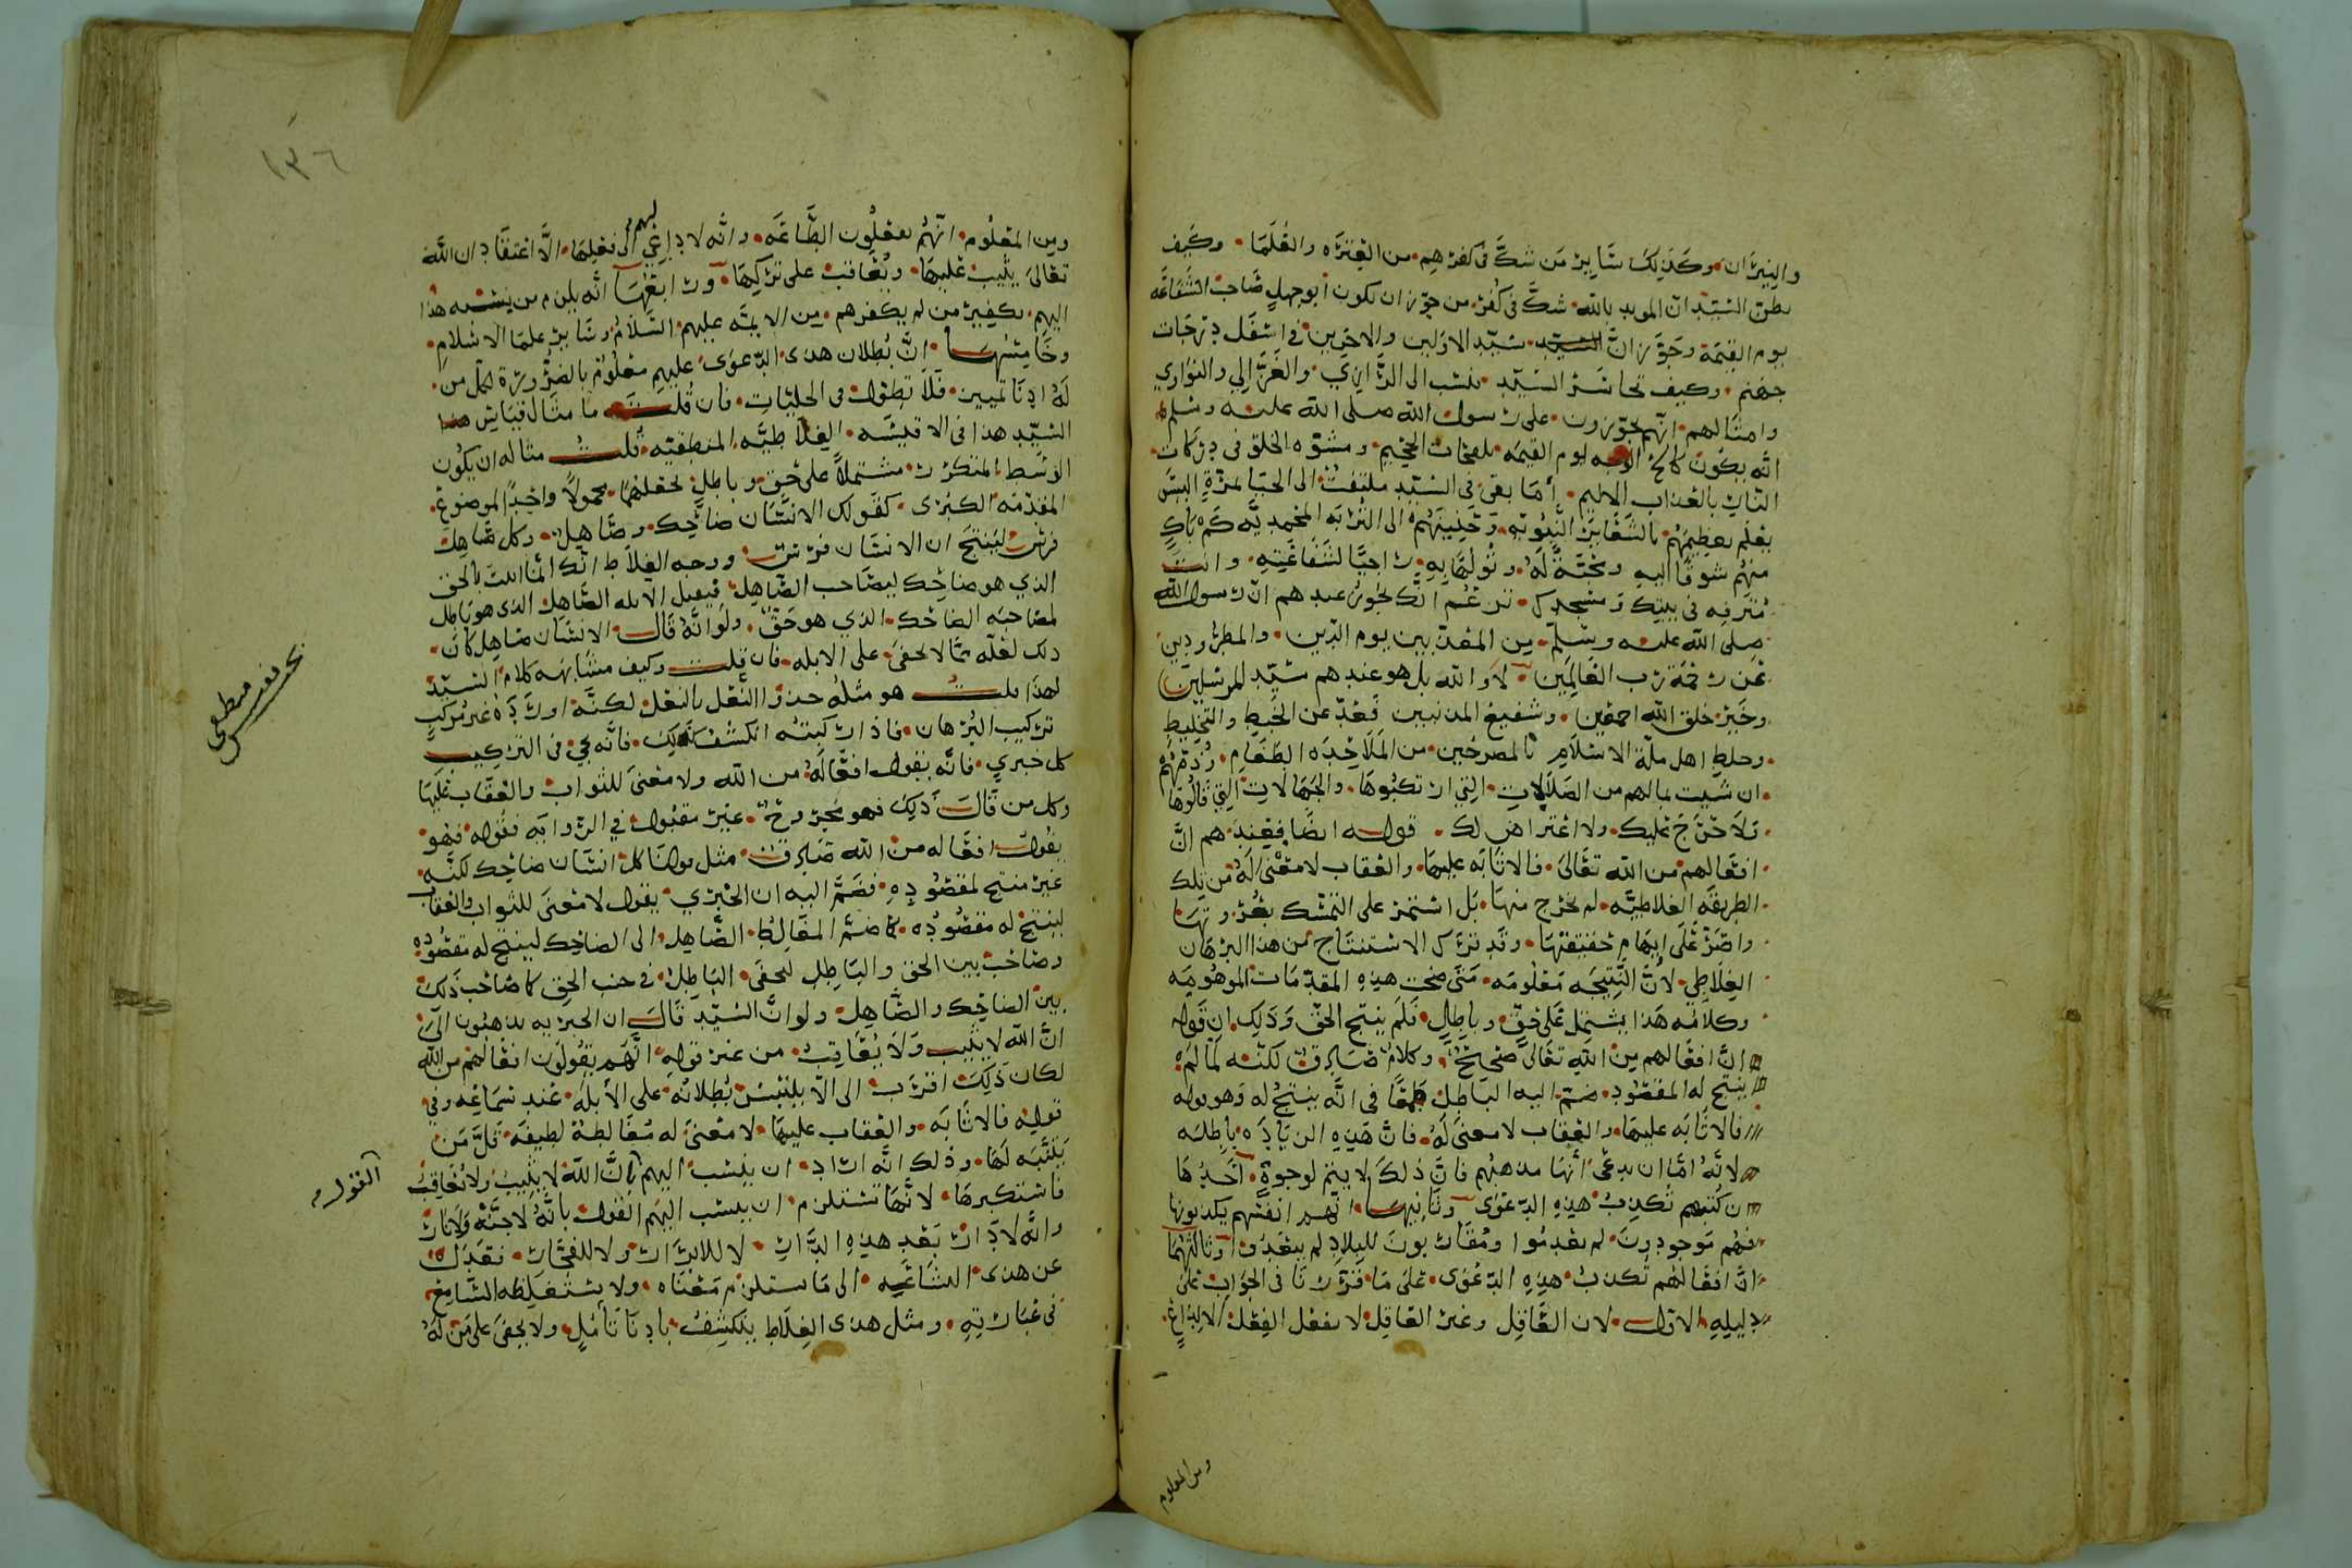 والنيران وكذلك سائر من شك في كفرهم من العترة والعلما وكيف
يظن السيد ان المويد بالله شك في كفر من جوز ان يكون أبو جهل صاحب الشفاعه
يوم القيمة وجوز انّ سيد الاولين والاخرين في اسفل درجات
جهنم وكيف تجاسر السيد ينسب الى الرازي والغزالي والنواوي
وامثالهم انهم يجوزون على رسول الله صلى الله عليه وسلم
انه يكون كالح الوجه يوم القيمه بلفحات الجحيم ومشوّه الخلق في دركات
النار بالعذاب الاليم أما بقي في السيد ملتفت الى الحيا لمرّة اليس
يعلم تعظيمهم بالشعاير النبويه وحنينهم الى التربه المحمديه كم باكٍ
منهم شوقًا اليه ومحبّة له وتولهًا به راجيًا لشفاعته وانت
مترفه في بيتك ومسجدك تزعم انك تجوز عندهم ان رسول الله
صلى الله عليه وسلم من المعذبين يوم الدين والمطرودين
عن رحمة رب العالمين لا والله بل هو عندهم سيد المرسلين
وخير خلق الله اجمعين وشفيع المذنبين فعدّ عن الخبط والتخليط
وخلط اهل ملة الاسلام بالمصرحين من الملاحده الطغام وذمهم
ان شيت بمالهم من الضلالات التي ارتكبوها والجهالات التي قالوها
فلا حرج عليك ولا اعتراض لك قوله ايضا فعند هم انّ
افعالهم من الله تعالى فالاثابه عليها والعقاب لا معنى له من تلك
الطريقه الغلاطيه لم يخرج منها بل استمر على التمسك بغرورتها
واصرّ على ايهام حقيقتها وقد ترك الاستنتاج من هذا البرهان
الغلاطي لانّ النتيجه معلومه متى صحت هذه المقدمات الموهومه
وكلامه هذا يشتمل على حقّ وباطل فلم ينتج الحق وذلك ان قوله
انّ افعالهم من الله تعالى صحيح وكلام صادق لكنه لما لم
ينتج له المقصود ضم اليه الباطل طمعًا في انّه ينتج له وهو قوله
فالاثابه عليها والعقاب لا معنى له فان هذه الزيادة باطله
لانّه امّا ان يدعى أنها مذهبهم فانّ ذلك لا يتم لوجوه احدها
ان كتبهم تكذب هذه الدعوى وثانيها انهم انفسهم يكذبونها
فهم موجودون لم يعدموا ومقاربون للبلاد لم يبعدوا وثالثها
انّ افعالهم تكذب هذه الدعوى على ما قررنا في الجواب على
دليله الاول لان العاقل وغير العاقل لا يفعل الفعل الا لداعٍ
ومن المعلوم
١٣٦
ومن المعلوم انهم يفعلون الطاعه وانه لا داعي لهم الى فعلها الّا اعتقاد ان الله
تعالى يثيب عليها ويعاقب على تركها ورابعها انه يلزم من ينسب هذا
اليهم تكفير من لم يكفرهم من الايمه عليهم السلام وساير علما الاسلام
وخامسها انّ بطلان هذى الدعوى عليهم معلوم بالضرورة لكل من
له ادنا تمييز فلا نطول في الجليّات فان قلت ما مثال قياس هذا
السيد هذا في الاقيسه الغلاطيّه المنطقيه قلت مثاله ان يكون
الوسط المتكرر مشتملًا على حق وباطل تجعلهما محمولًا واحدًا لموضوع
المقدمه الكبرى كقولك الانسان ضاحك وصاهل وكل صاهل
فرس لينتج ان الانسان فرس ووجه الغلاط انك البست بالحق
الذي هو ضاحك لمصاحب الصاهل فيقبل الابله الصاهل الذي هو باطل
لمصاحبه الضاحك الذي هو حق ولو انّه قال الانسان صاهل كان
ذلك لعله مما لا يخفى على الابله فان قلت وكيف مشابهه كلام السيد
لهذا قلت هو مثله حذو النعل بالنعل لكنّه اورده غير مركب
تركيب البرهان فاذا ركبته انكشف لك فانه يجي في التركيب
كل جبري فانه يقول افعاله من الله ولا معنى للثواب والعقاب عليها
وكل من قال ذلك فهو مجروح غير مقبول في الروايه فقوله فهو
يقول افعاله من الله صادق مثل قولنا كل انسان ضاحك لكنّه
غير منتج لمقصوده فضم اليه ان الجبري يقول لا معنى للثواب والعقاب
لينتج له مقصوده كما ضم المغالط الصاهل الى الضاحك لينتج له مقصوده
وصاحب بين الحق والباطل ليخفى الباطل في جنب الحق كما صاحب ذلك
بين الضاحك والصاهل ولو انّ السيد قال ان الجبريه يذهبون الى
انّ الله لا يثيب ولا يعاقب من غير قوله انّهم يقولون افعالهم من الله
لكان ذلك اقرب الى الّا يلتبس بطلانه على الابله عند سماعه وفي
قوله فالاثابه والعقاب عليها لا معنى له مغالطة لطيفه قلّ من
يتنبه لها وذلك انه اراد ان ينسب اليهم انّ الله لا يثيب ولا يعاقب
فاستكبرها لانّها تستلزم ان ينسب اليهم القول بانّه لا جنّه ولا نار
وانّه لا دار بعد هذه الدار لا للابرار ولا للفجار فعدل
عن هذى الشناعيه الى ما يستلزم معناه ولا يستغلظه السامع
في عبارته ومثل هذى الغلاط ينكشف بادنا تامل ولا يخفى على من له
القول